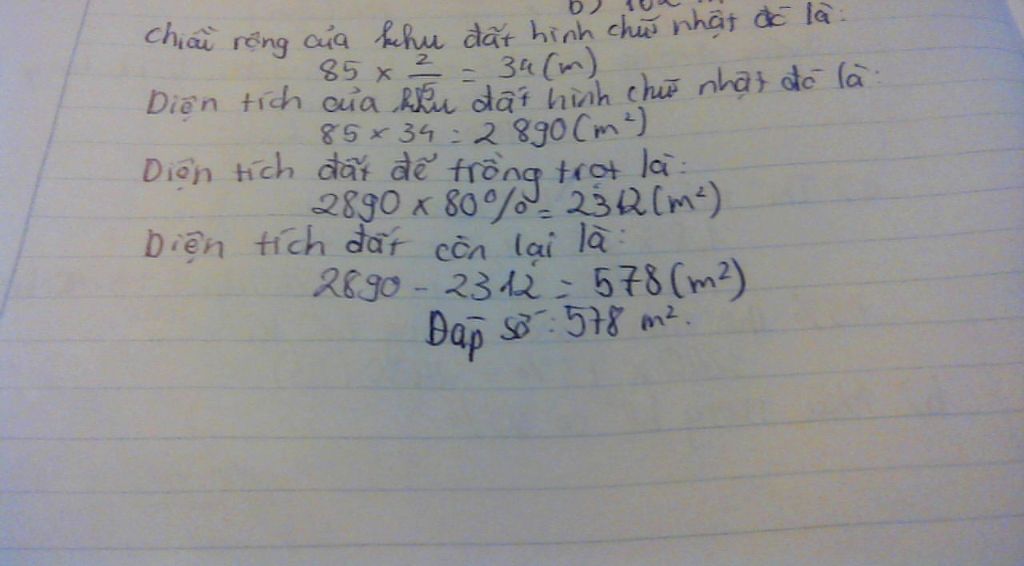 Chiều rộng của khu đất hình chữ nhật đó là:
85 × 2/5 = 34 (m)
Diện tích của khu đất hình chữ nhật đó là:
85 × 34 = 2 890 (m²)
Diện tích đất để trồng trọt là:
2890 × 80% = 2312 (m²)
Diện tích đất còn lại là:
2890 - 2312 = 578 (m²)
Đáp số: 578 m².